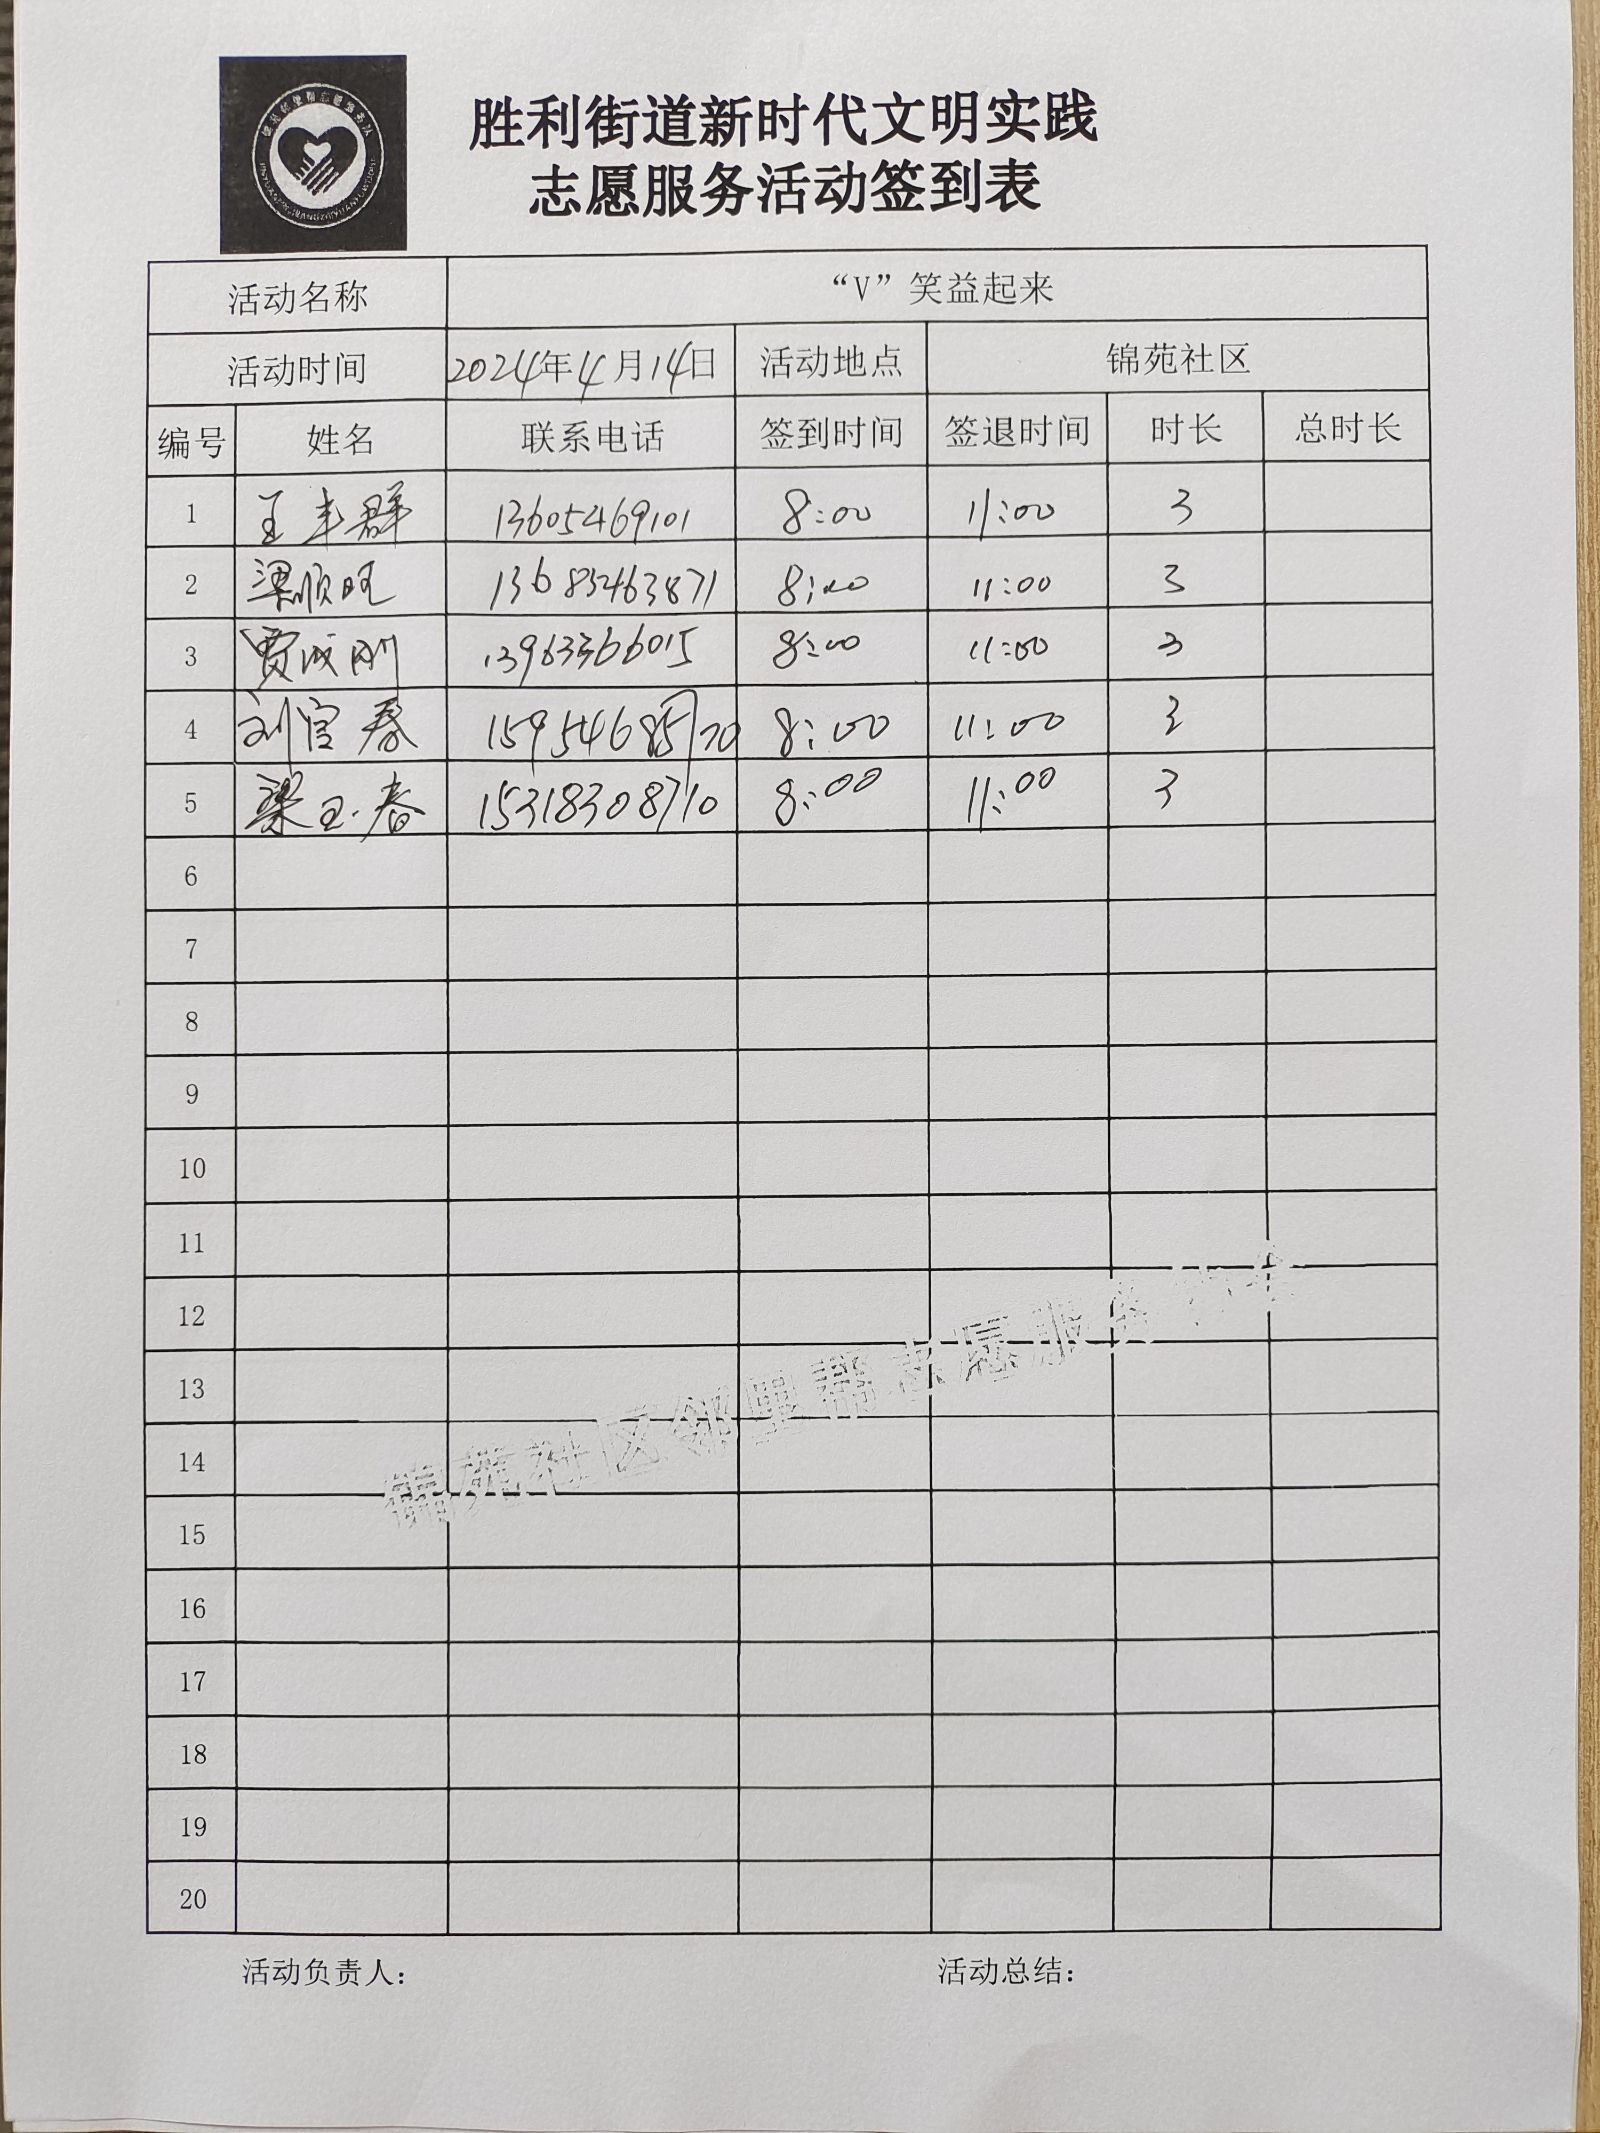 胜利街道新时代文明实践
志愿服务活动签到表
活动名称 “V”笑益起来
活动时间 2024年4月14日 活动地点 锦苑社区
编号 姓名 联系电话 签到时间 签退时间 时长 总时长
1 王丰群 13605469101 8:00 11:00 3
2 梁顺旺 13685463871 8:00 11:00 3
3 贾成刚 13963366015 8:00 11:00 3
4 刘官春 8:00 11:00 3
5 梁玉春 15318308710 8:00 11:00 3
6
7
8
9
10
11
12
13
14
15
16
17
18
19
20
锦苑社区邻里帮志愿服务协会
活动负责人： 活动总结：